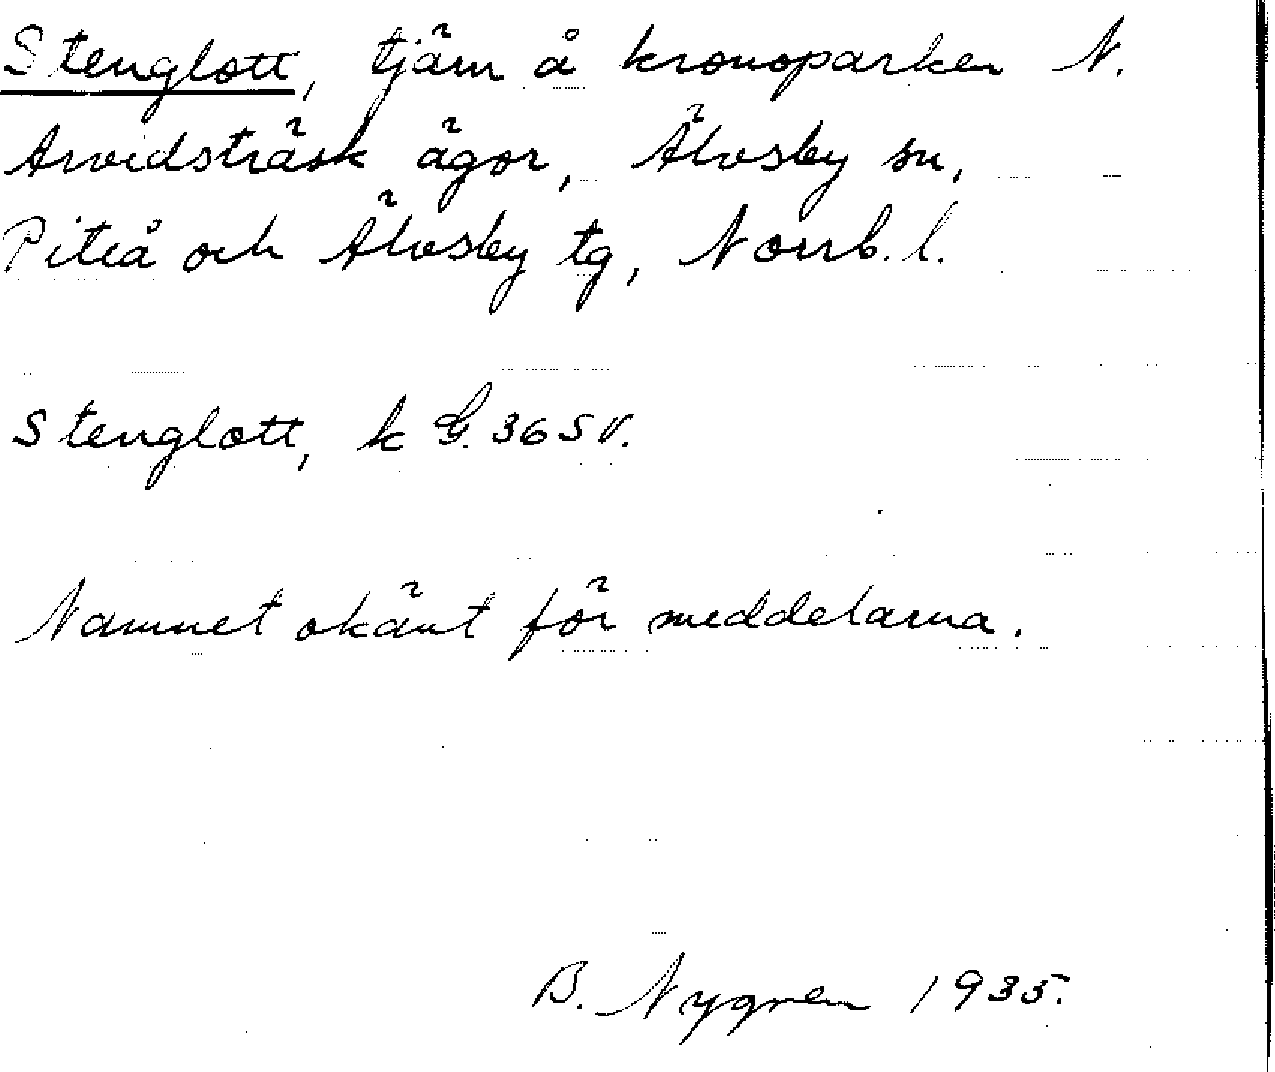 Stenglott, tjärn å kronoparken N.
Arvidsträsk ägor, Älvsby sn,
Piteå och Älvsby tg, Norrb. l.
Stenglott, k G. 36 SV.
Namnet okänt för meddelarna.
B. Nygren 1935.